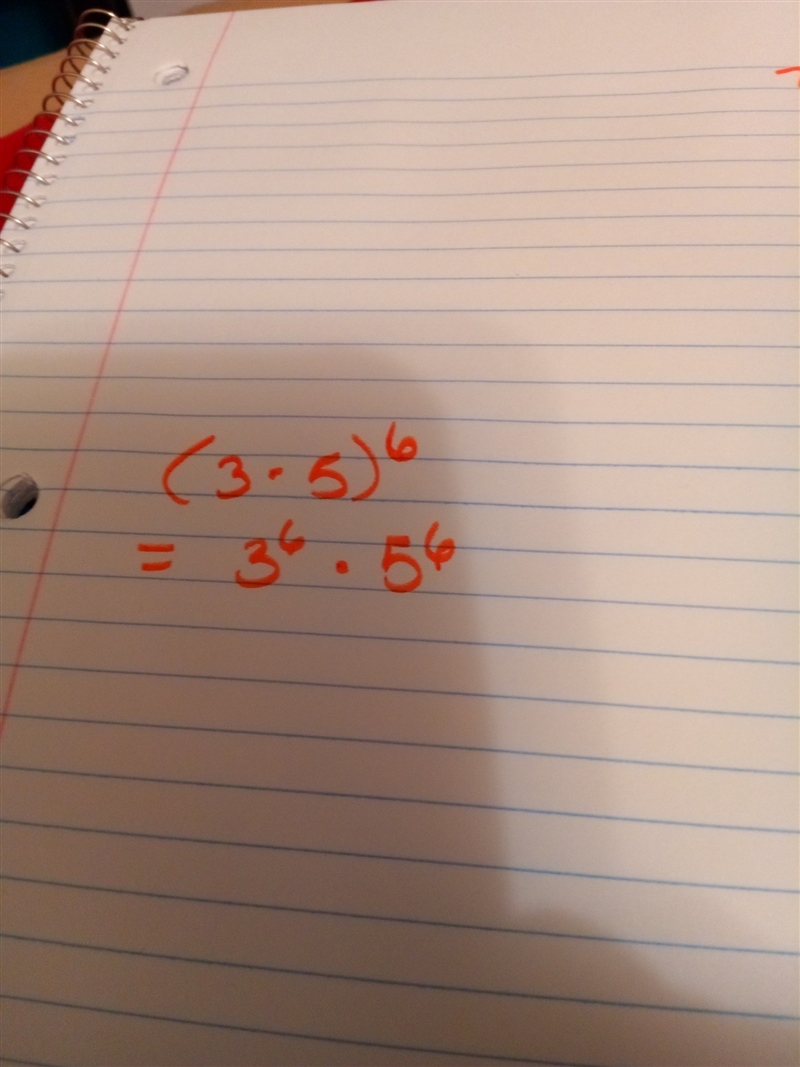 (3 · 5)⁶
= 3⁶ · 5⁶